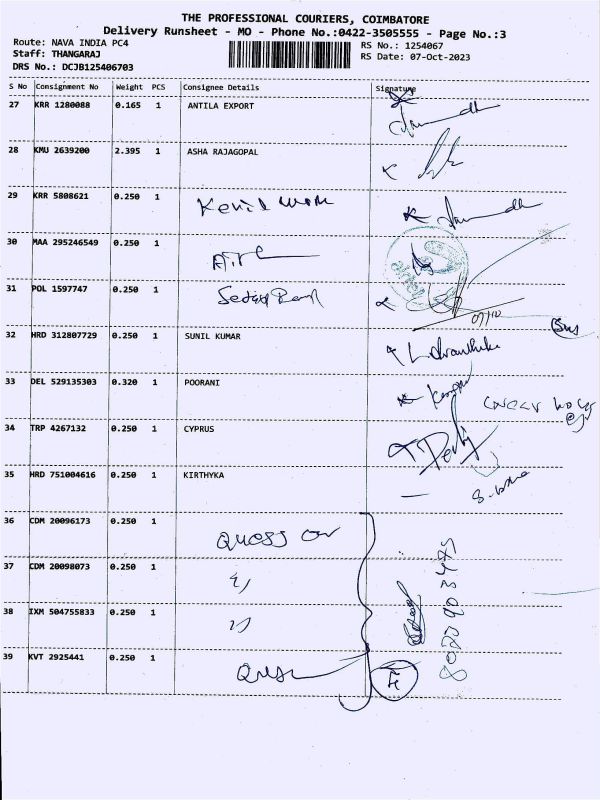 THE PROFESSIONAL COURIERS, COIMBATORE
Delivery Runsheet - MO - Phone No.:0422-3505555 - Page No.:3
Route: NAVA INDIA PC4
Staff: THANGARAJ
DRS No.: DCJB125406703
RS No.: 1254067
RS Date: 07-Oct-2023
S No Consignment No Weight PCS Consignee Details Signature
27 KRR 1280088 0.165 1 ANTILA EXPORT
28 KMU 2639200 2.395 1 ASHA RAJAGOPAL
29 KRR 5808621 0.250 1
30 MAA 295246549 0.250 1
31 POL 1597747 0.250 1
07/10
32 HRD 312807729 0.250 1 SUNIL KUMAR
33 DEL 529135303 0.320 1 POORANI
34 TRP 4267132 0.250 1 CYPRUS
35 HRD 751004616 0.250 1 KIRTHYKA
36 CDM 20096173 0.250 1 Quess
37 CDM 20098073 0.250 1 "
38 IXM 504755833 0.250 1 "
39 KVT 2925441 0.250 1